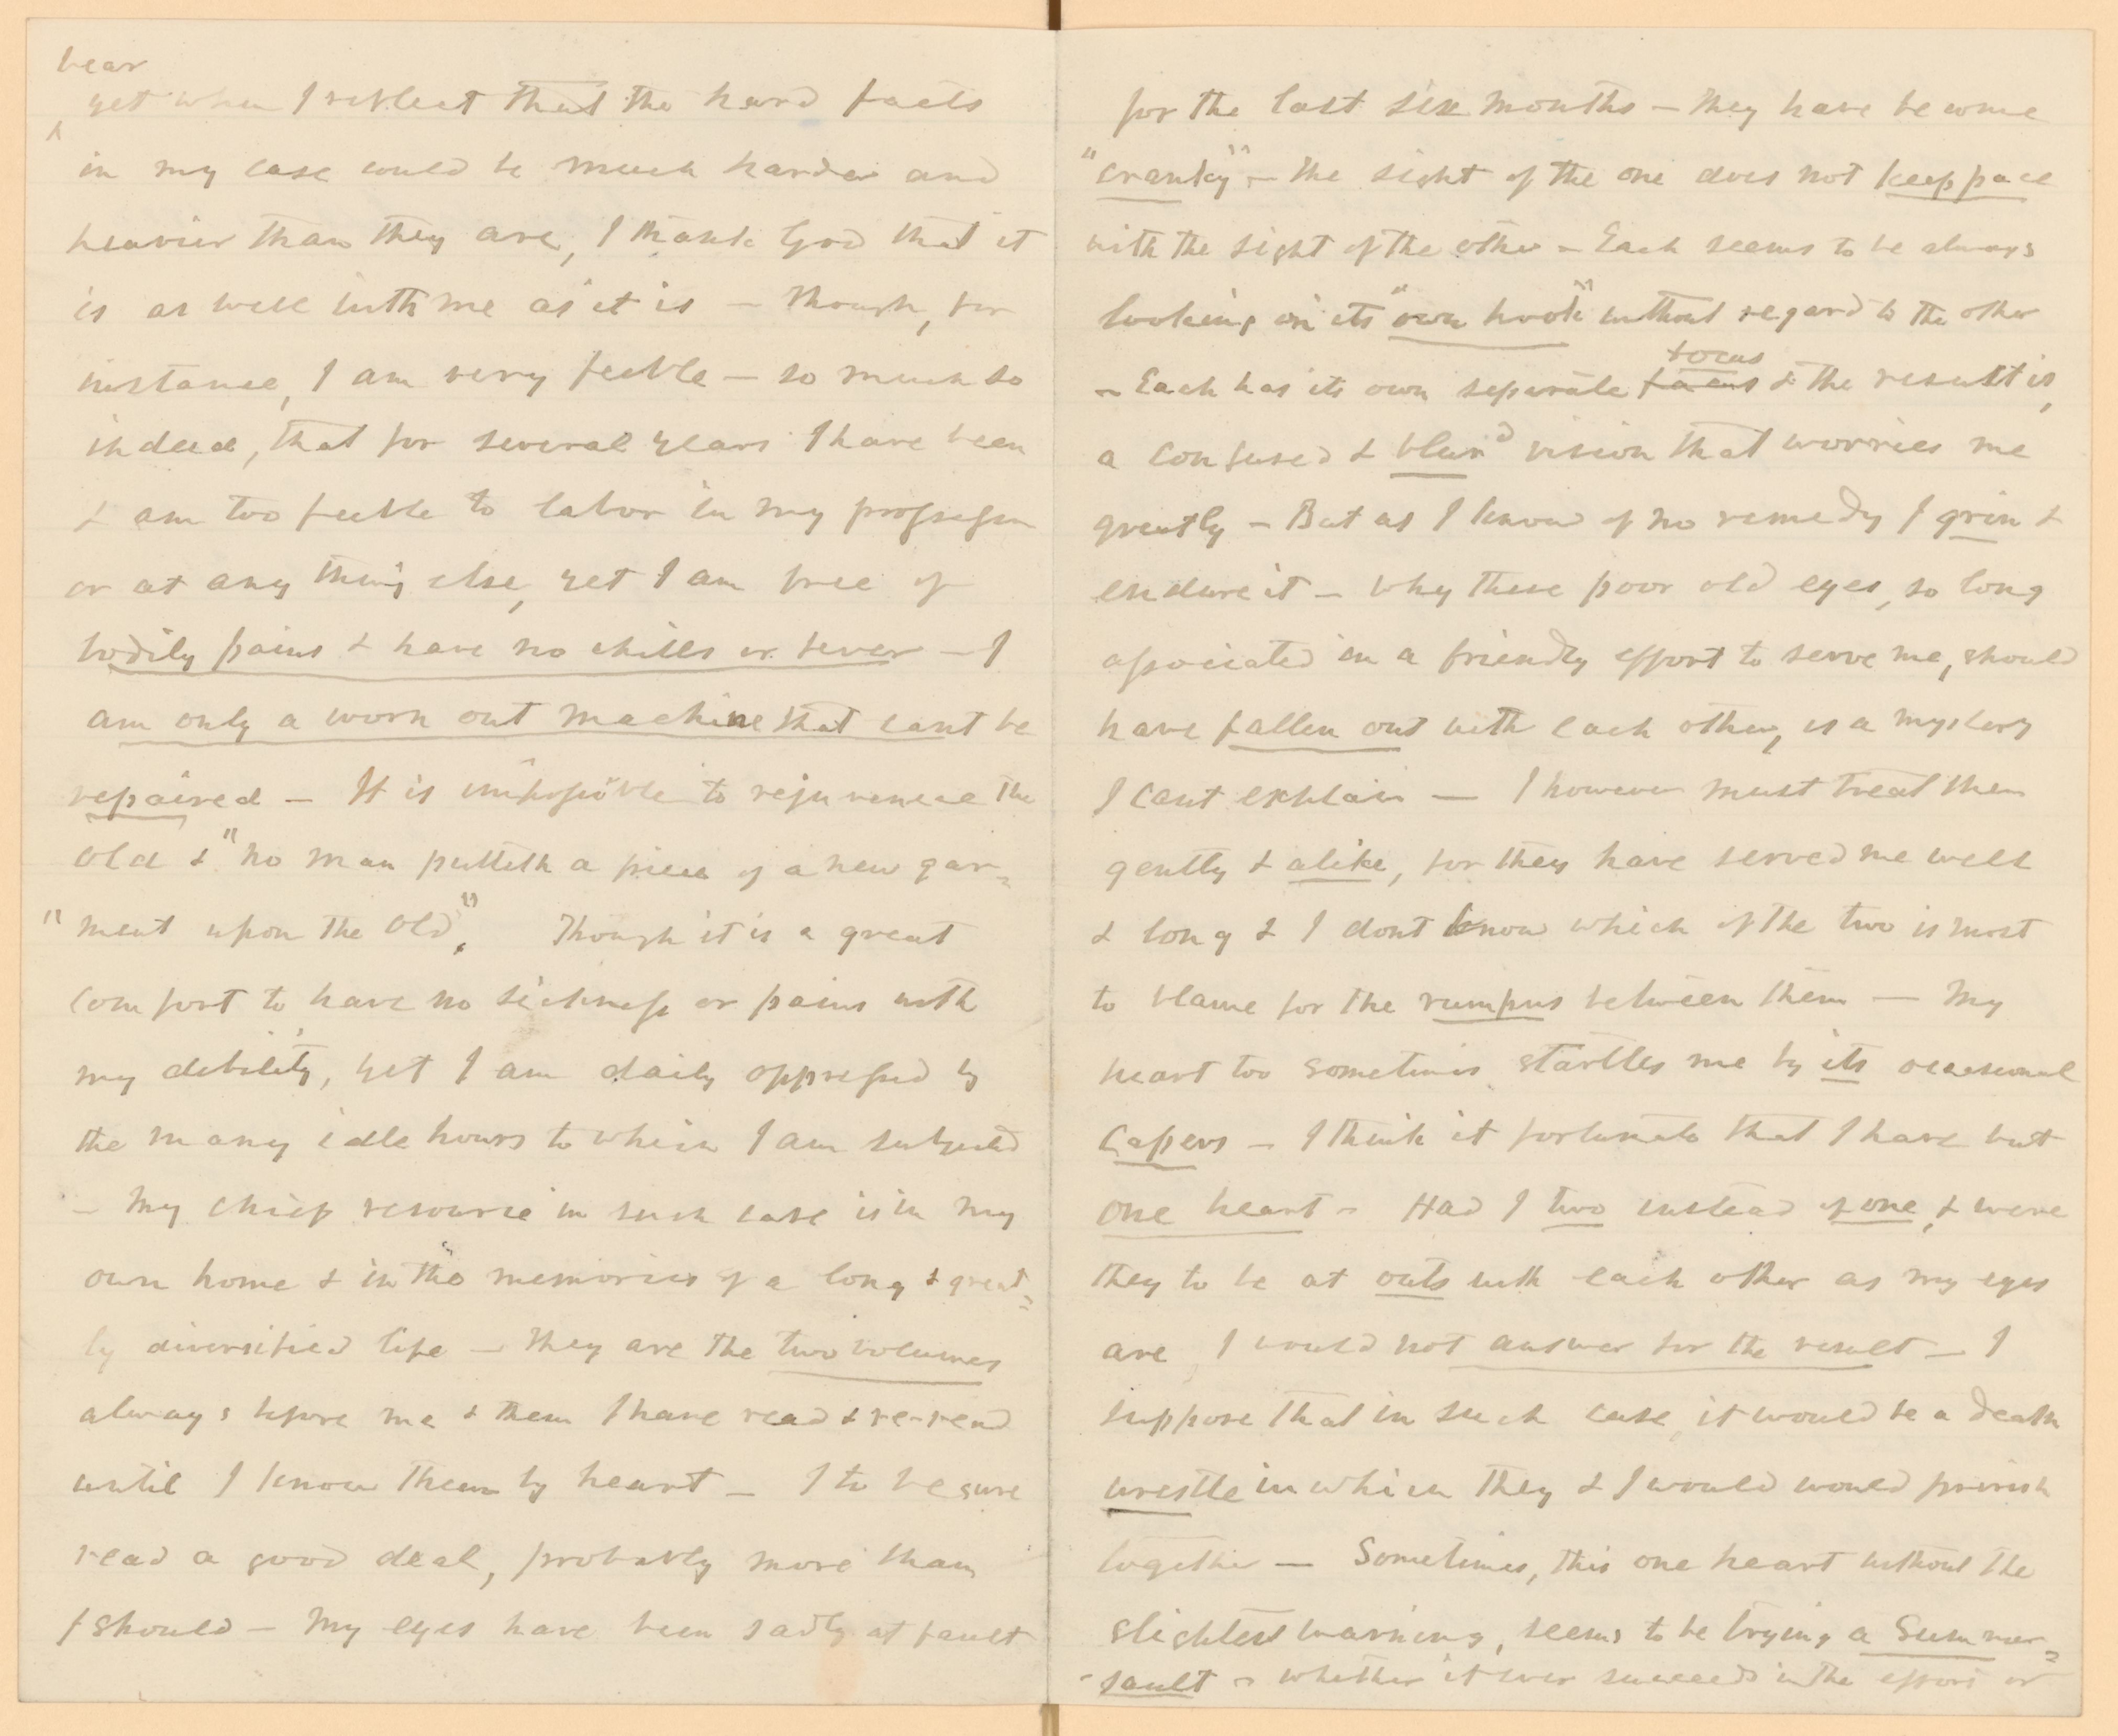 bear
yet when I reflect that the hard facts
in my case could be much harder and
heavier than they are, I thank God that it
is as well with me as it is — Though, for
instance, I am very feeble — so much so
indeed, that for several years I have been
& am too feeble to labor in my profession
or at any thing else, yet I am free of
bodily pains & have no chills or fever — I
am only a worn out machine that cant be
repaired — It is impossible to rejuvenate the
old & "no man putteth a piece of a new gar=
"ment upon the old". Though it is a great
comfort to have no sickness or pains with
my debility, yet I am daily oppressed by
the many idle hours to which I am subjected
— My chief resource in such case is in my
own home & in the memories of a long & great=
ly diversified life — They are the two volumes
always before me & them I have read & re-read
until I know them by heart — I to be sure
read a good deal, probably more than
I should — My eyes have been sadly at fault
for the last six months — They have become
"cranky" — the sight of the one does not keep pace
with the sight of the other — Each seems to be always
looking on its "own hook" without regard to the other
— Each has its own separate focus & the result is,
a confused & blurd vision that worries me
greatly — But as I know of no remedy I grin &
endure it — Why these poor old eyes, so long
associated in a friendly effort to serve me, should
have fallen out with each other, is a mystery
I cant explain — I however must treat them
gently & alike, for they have served me well
& long & I dont know which of the two is most
to blame for the rumpus between them — My
heart too sometimes startles me by its occasional
capers — I think it fortunate that I have but
one heart — Had I two instead of one, & were
they to be at outs with each other as my eyes
are, I would not answer for the result — I
suppose that in such case, it would be a death
wrestle in which they & I would would perish
together — Sometimes, this one heart without the
slightest warning, seems to be trying a Summer=
-sault — whether it ever succeeds in the effort or